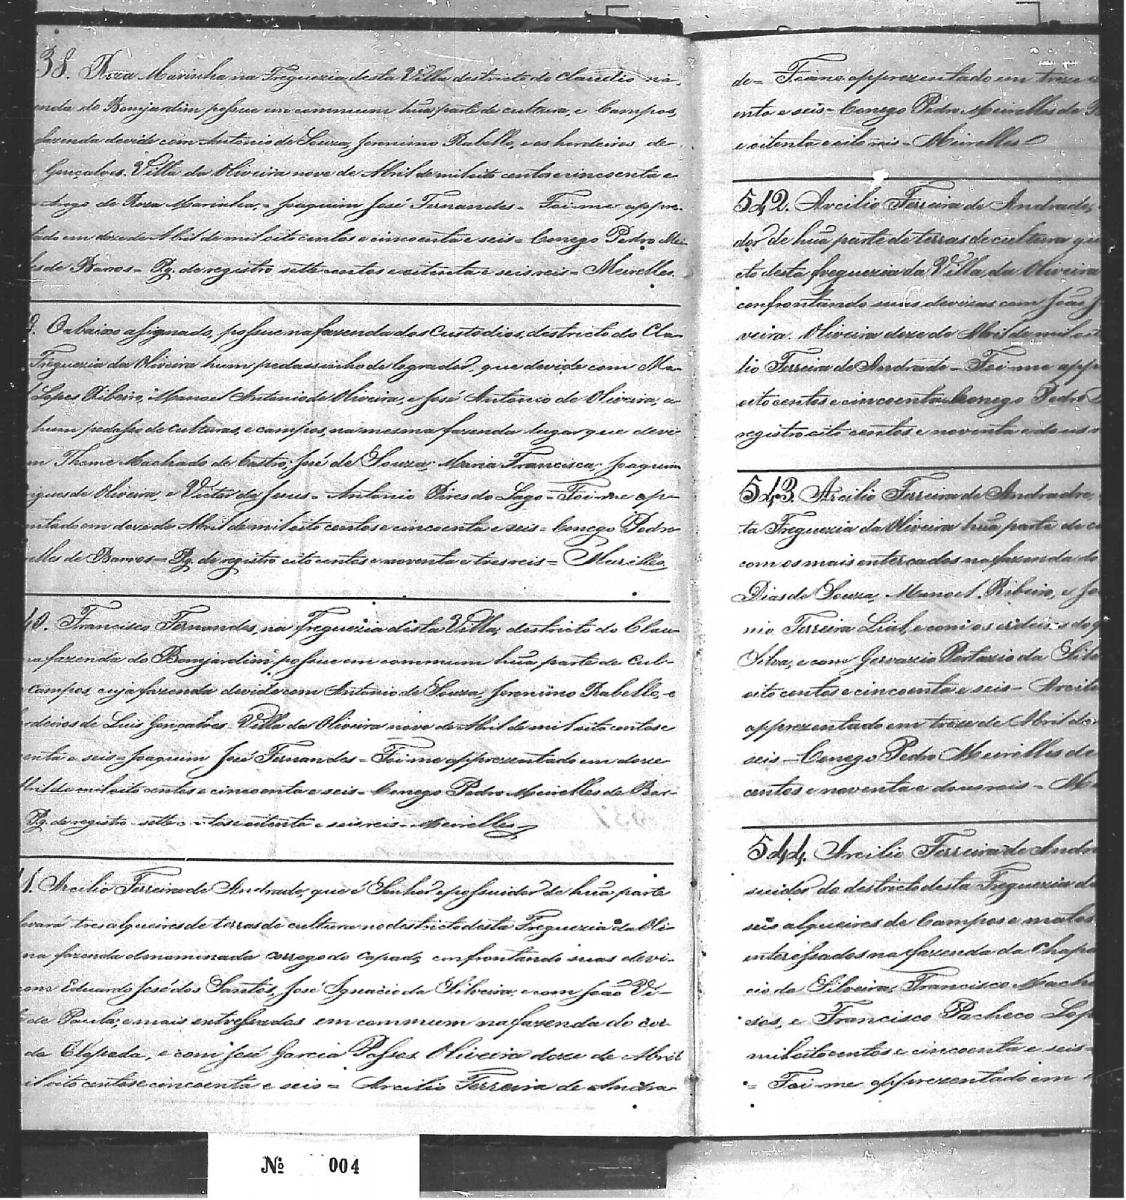 38. Roza Marinha na Freguezia desta Villa destricto de Claudio na
enda do Bomjardim possue em commum huã parte de cultura, e Campos,
fazenda devide com Antonio de Souza, Jeronimo Rabello, e os herdeiros de
Gonçalves. Villa da Oliveira nove de Abril de mil oito centos e cincoenta e
Arogo de Roza Marinha, - Joaquim José Fernandes - Foi-me appre-
tado em doze de Abril de mil oito centos e cincoenta e seis - Conego Pedro Mei-
les de Barros - Pg. de registro sette centos e oitenta e seis reis - Meirelles.
9. O abaixo assignado, possue na fazenda dos Custodios, destricto do Clau-
Freguezia da Oliveira hum pedassinho de logrador, que devide com Ma-
Lopes Ribeiro, Manoel Antonio de Oliveira, e José Antonio de Oliveira, e
hum pedasso de culturas, e campos, na mesma fazenda lugar que devi-
m Thome Machado de Castro, José de Souza, Maria Francisca, Joaquim
rigues de Oliveira, e Victor de Jesus - Antonio Pires do Lago - Foi-me ap-
zentado em doze de Abril de mil oito centos e cincoenta e seis - Conego Pedro
elles de Barros - Pg. de registro oito centos e noventa e tres reis - Meirelles
40. Francisco Fernandes, na Freguezia dista Villa, destricto do Clau-
na fazenda do Bomjardim, possue em commum huã parte de Cul-
e campos, cuja fazenda devide com Antonio de Souza, Jeronimo Rabello, e
deiros de Luis Gonçalves. Villa da Oliveira nove de Abril de mil oito centos e
enta e seis - Joaquim José Fernandes - Foi-me apprezentado em doze
bril de mil oito centos e cincoenta e seis - Conego Pedro Meirelles de Bar-
Pg. de registro sette centos e oitenta e seis reis - Meirelles
41. Arcilio Ferreira de Andrade, que é Senhor e possuidor de huã parte
levará tres alqueires de terras de cultura no destricto desta Freguezia da Oli-
na fazenda denominada corrego do capado, confrontando suas devi-
com Eduardo José dos Santos, José Ignacio da Silveira, e com João Vi-
de Paula; e mais em commum na fazenda do cor-
da e com José Garcia Passos. Oliveira doze de Abril
il oito centos e cincoenta e seis = Arcilio Ferreira de Andra-
de - Foi-me apprezentado em treze
enta e seis - Conego Pedro Meirelles de B
e oitenta e oito reis - Meirelles
542. Arcilio Ferreira de Andrade,
dor de huã parte de terras de cultura que
cto desta freguezia da Villa da Oliveira
confrontando suas devizas com João
veira. Oliveira doze de Abril de mil oi
lio Ferreira de Andrade - Foi-me app
oito centos e cincoenta Conego Pedro
registro oito centos e noventa e dois r
543. Arcilio Ferreira de Andrade,
ta Freguezia da Oliveira huã parte de c
com os mais na fazenda do
Dias de Souza, Manoel Ribeiro, e Jo
nio Ferreira Lial, e com os erdeiros do
Silva, e com Gervazio Protazio da Silv
oito centos e cincoenta e seis - Arcili
apprezentado em treze de Abril de
seis - Conego Pedro Meirelles de
centos e noventa e dous reis - Me
544. Arcilio Ferreira de Andra
suidor do destricto desta Freguezia da
seis alqueires de Campos e matos
interessados na fazenda da Chapa
cio da Silveira, Francisco Mach
cios, e Francisco Pacheco Lop
mil oito centos e cincoenta e seis -
- Foi-me apprezentado em
Nº 004